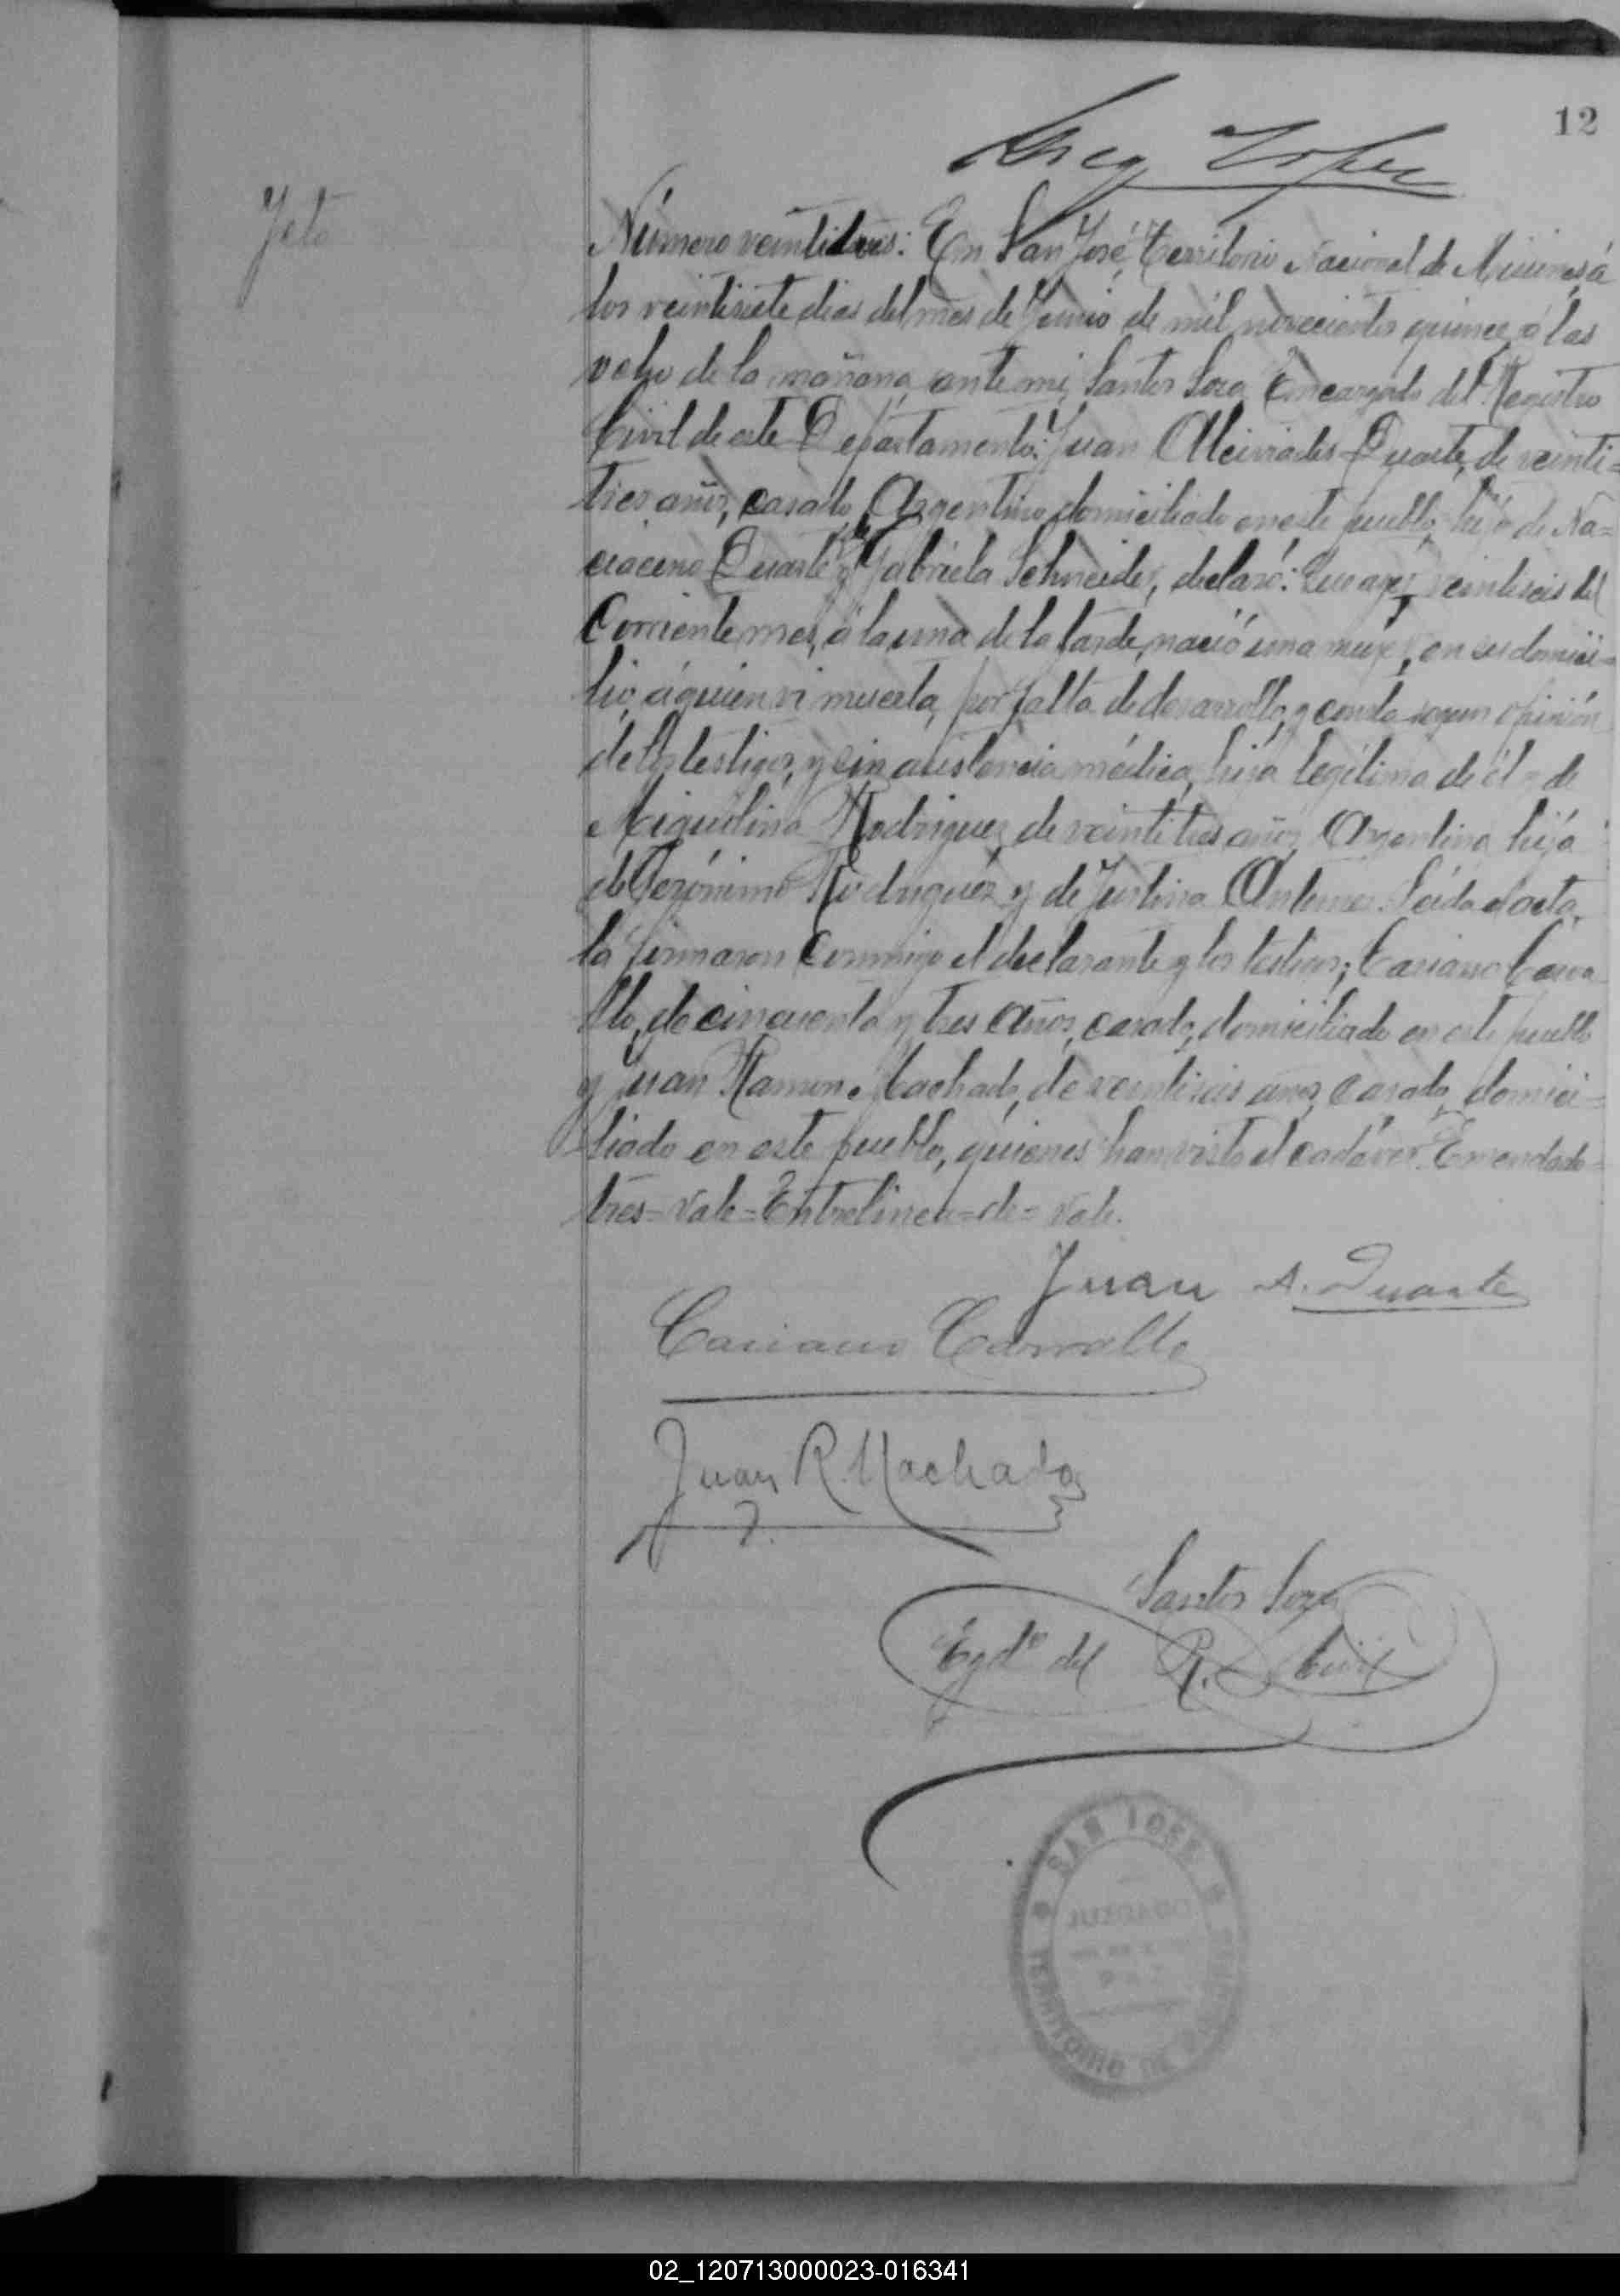 12
Feto
Número veintitres: En San José, Territorio Nacional de Misiones, á
los veintisiete dias del mes de Junio de mil novecientos quince, á las
ocho de la mañana, ante mi, Santos Soza Encargado del Registro
Civil de este Departamento: Juan Alciviades Duarte, de veinti=
tres años, casado, Argentino, domiciliado en este pueblo, hijo de Na=
cianceno Duarte y de Gabriela Schneider, declaró: Que ayer veintiseis del
Corriente mes, á la una de la tarde, nació una mujer, en su domici=
lio, á quien vi muerta, por falta de desarrollo, segun opinión
de los testigos, y sin asistencia médica, hija legítima de él = de
Miguelina Rodriguez, de veintitres años, Argentina, hija
de Gerónimo Rodriguez y de Justina Antunes. Leída el acta,
la firmaron conmigo el declarante y los testigos; Cariano Carva
llo, de cincuenta y tres años, casado, domiciliado en este pueblo
y Juan Ramon Machado, de veintiseis años, casado, domici=
liado en este pueblo, quienes han visto el cadáver. Emendado=
tres=vale=Entrelinea=de=vale.
Juan A. Duarte
Cariano Carvallo
Juan R. Machado
Santos Soza
Egdo del R. Civil
SAN JOSE
JUZGADO
DE
PAZ
TERRITORIO DE MISIONES
02_120713000023-016341